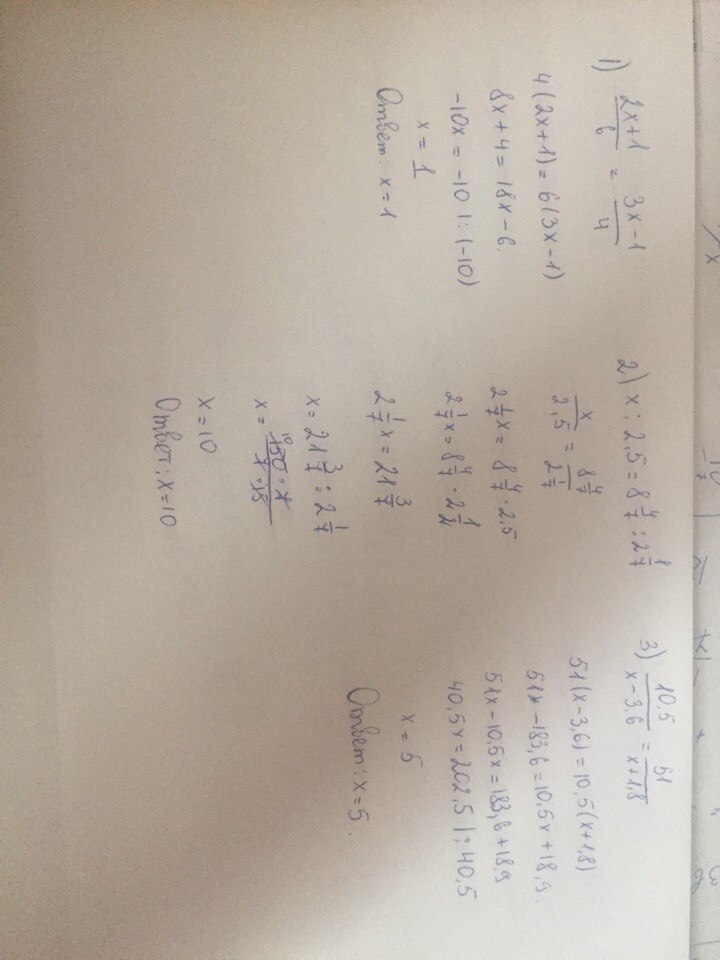 1) (2x+1)/6 = (3x-1)/4
4(2x+1)=6(3x-1)
8x+4=18x-6.
-10x=-10 |:(-10)
x=1
Ответ: x=1
2) x : 2,5 = 8 4/7 : 2 1/7
x/2,5 = 8 4/7 / 2 1/7
2 1/7 x = 8 4/7 · 2,5
2 1/7 x = 8 4/7 · 2 1/2
2 1/7 x = 21 3/7
x = 21 3/7 : 2 1/7
x = 10 150·7 / 7·15
x=10
Ответ: x=10
3) 10,5/(x-3,6) = 51/(x+1,8)
51(x-3,6)=10,5(x+1,8)
51x-183,6=10,5x+18,9.
51x-10,5x=183,6+18,9
40,5x=202,5 |:40,5
x=5
Ответ: x=5.